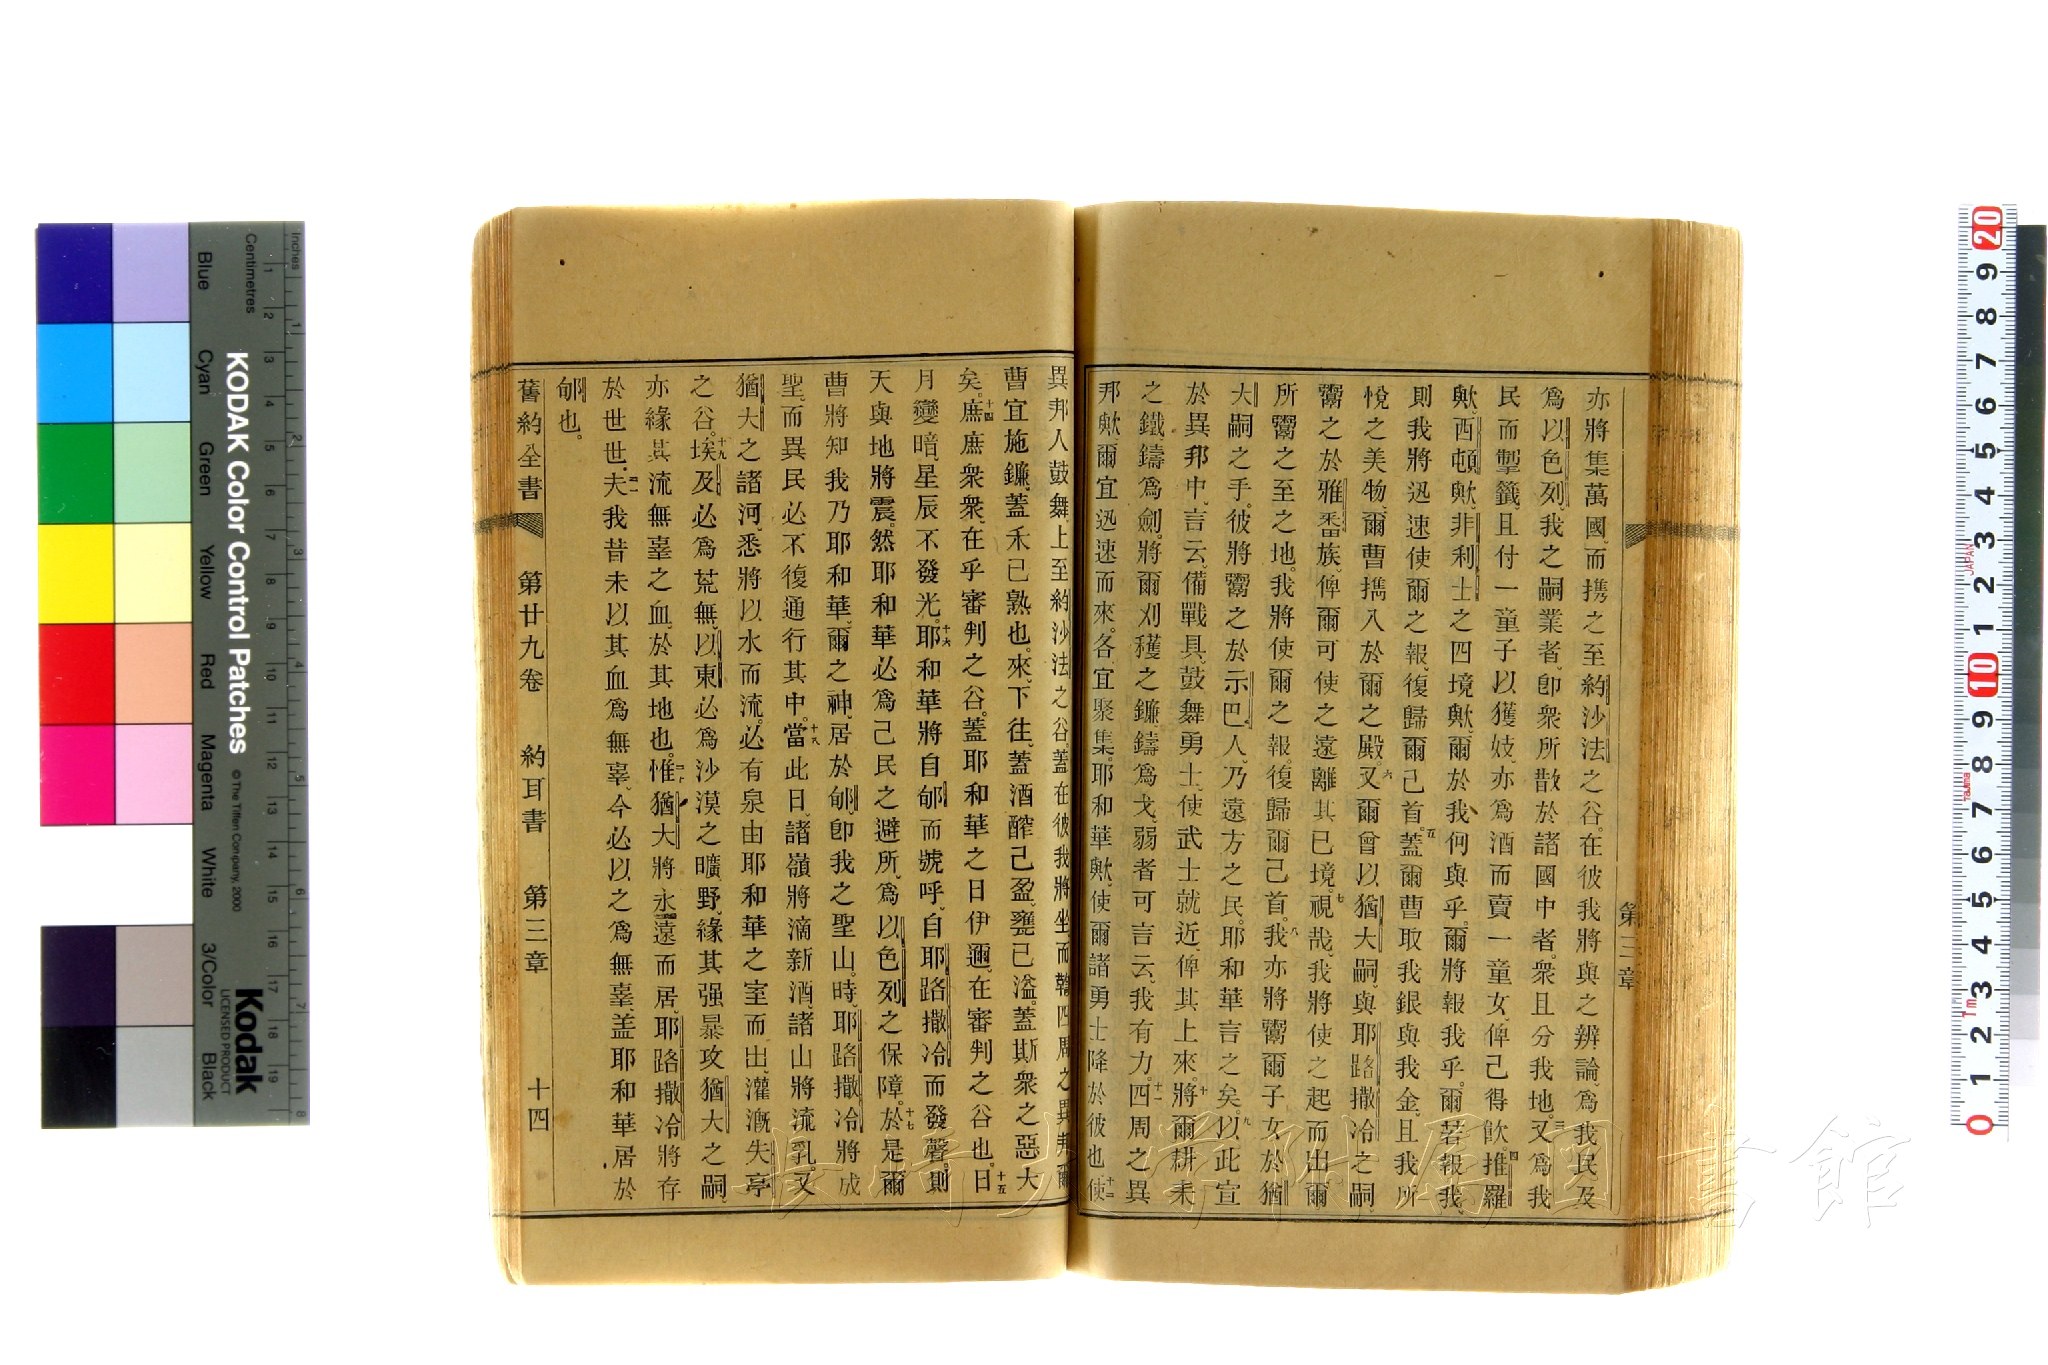 第三章
亦將集萬國、而攜之至約沙法之谷。在彼我將與之辨論、爲我民、及
爲以色列、我之嗣業者、卽衆所散於諸國中者、衆且分我地。三又爲我
民而掣籤、且付一童子以獲妓、亦爲酒而賣一童女、俾己得飲。四推羅
歟、西頓歟、非利士之四境歟、爾於我何與乎、爾將報我乎。爾若報我、
則我將迅速使爾之報、復歸爾己首。五蓋爾曹取我銀與我金、且我所
悅之美物、爾曹攜入於爾之殿。六又爾曾以猶大嗣、與耶路撒冷之嗣、
鬻之於雅番族、俾爾可使之遠離其已境。七視哉、我將使之起而出爾
所鬻之至之地。我將使爾之報、復歸爾己首。八我亦將鬻爾子女於猶
大嗣之手。彼將鬻之於示巴人、乃遠方之民、耶和華言之矣。九以此宣
於異邦中、言云、備戰具、鼓舞勇士、使武士就近、俾其上來。十將爾耕耒
之鐵鑄爲劍、將爾刈穫之鐮、鑄爲戈、弱者可言云、我有力。十一四周之異
邦歟、爾宜迅速而來。各宜聚集。耶和華歟、使爾諸勇士降於彼也。十二使
異邦人鼓舞、上至約沙法之谷。蓋在彼我將坐、而鞫四周之異邦。爾
曹宜施鐮、蓋禾已熟也。來、下往、蓋酒醡已盈、甕已溢。蓋斯衆之惡大
矣。十四庶庶衆衆、在乎審判之谷。蓋耶和華之日伊邇、在審判之谷也。十五日
月變暗、星辰不發光。十六耶和華將自郇而號呼、自耶路撒冷而發聲。則
天與地將震。然耶和華必爲己民之避所、爲以色列之保障。十七於是爾
曹將知我乃耶和華、爾之神、居於郇、卽我之聖山。時、耶路撒冷將成
聖、而異民必不復通行其中。十八當此日、諸嶺將滴新酒、諸山將流乳、又
猶大之諸河、悉將以水而流。必有泉由耶和華之室而出、灌漑失亭
之谷。十九埃及必爲荒蕪、以東必爲沙漠之曠野、緣其强暴攻猶大之嗣、
亦緣其流無辜之血、於其地也。二十惟猶大將永遠而居、耶路撒冷將存
於世世。夫我昔未以其血爲無辜、今必以之爲無辜、盖耶和華居於
郇也。
舊約全書 第廿九卷 約耳書 第三章 十四
KODAK Color Control Patches
© The Tiffen Company, 2000
Kodak
LICENSED PRODUCT
Inches
Centimetres
Blue Cyan Green Yellow Red Magenta White 3/Color Black
JAPAN
Tajima
1m
長崎大学附属図書館